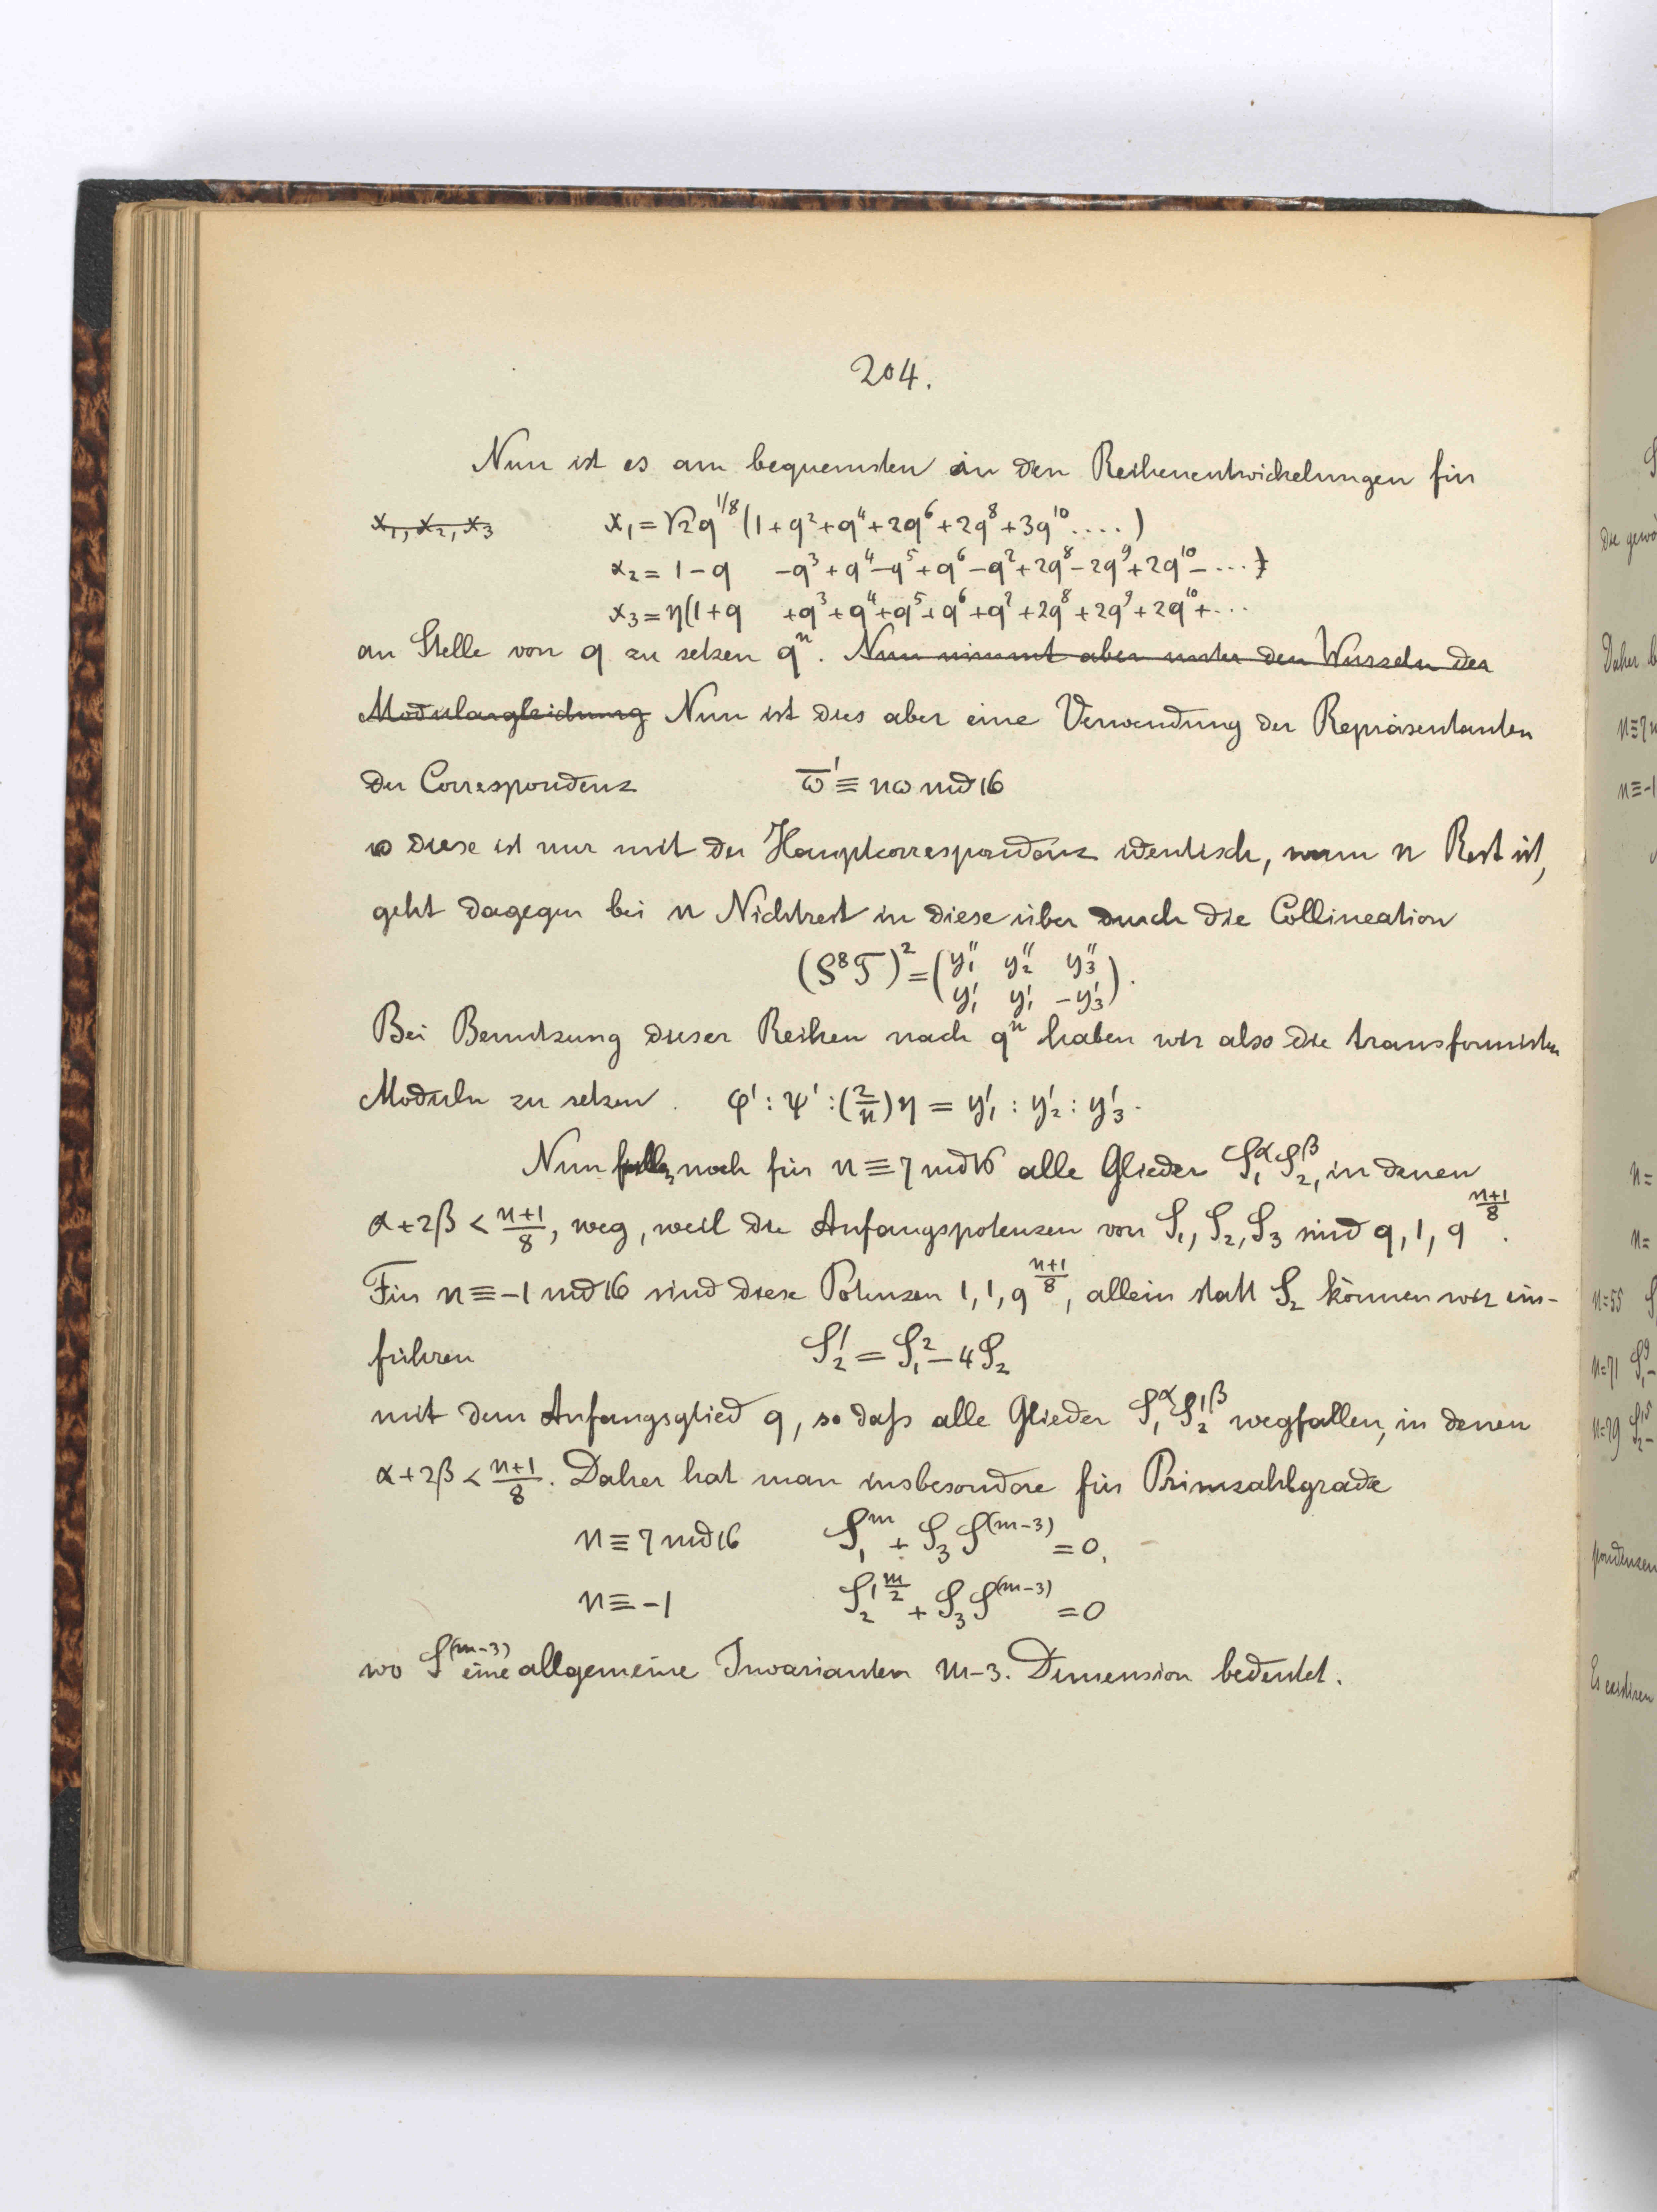 204.
Nun ist es am bequemsten in den Reihenentwickelungen für
x₁, x₂, x₃ x₁ = √2 q^{1/8} (1 + q² + q⁴ + 2q⁶ + 2q⁸ + 3q¹⁰ ....)
x₂ = 1 - q - q³ + q⁴ - q⁵ + q⁶ - q⁷ + 2q⁸ - 2q⁹ + 2q¹⁰ - ... )
x₃ = η(1 + q + q³ + q⁴ + q⁵ + q⁶ + q⁷ + 2q⁸ + 2q⁹ + 2q¹⁰ + ...
an Stelle von q zu setzen qⁿ. Nun nimmt aber unter den Wurzeln der
Modulargleichung Nun ist dies aber eine Verwendung der Repräsentanten
der Correspondenz ω̅' ≡ nω md 16
diese ist nur mit der Hauptcorrespondenz identisch, wenn n Rest ist,
geht dagegen bei n Nichtrest in diese über durch die Collineation
(S⁸T)² = (y₁'' y₂'' y₃'' / y₁' y₁' -y₃').
Bei Benutzung dieser Reihen nach qⁿ haben wir also die transformirten
Moduln zu setzen. φ' : ψ' : (2/n) η = y₁' : y₂' : y₃'.
Nun fallen noch für n ≡ 7 md 16 alle Glieder S₁^α S₂^β, in denen
α + 2β < (n+1)/8, weg, weil die Anfangspotenzen von S₁, S₂, S₃ sind q, 1, q^{(n+1)/8}.
Für n ≡ -1 md 16 sind diese Potenzen 1, 1, q^{(n+1)/8}, allein statt S₂ können wir ein-
führen S₂' = S₁² - 4S₂
mit dem Anfangsglied q, so daß alle Glieder S₁^α S₂'^β wegfallen, in denen
α + 2β < (n+1)/8. Daher hat man insbesondere für Primzahlgrade
n ≡ 7 md 16 S₁^m + S₃ S^{(m-3)} = 0,
n ≡ -1 S₂'^{m/2} + S₃ S^{(m-3)} = 0
wo S^{(m-3)} eine allgemeine Invarianten m-3. Dimension bedeutet.
die gewö
Daher b
n≡7 m
n≡-1
n=
n=
n=55 S
n=71 S₁⁹-
n=79 S₂'⁵-
spondenzen
Es existiren